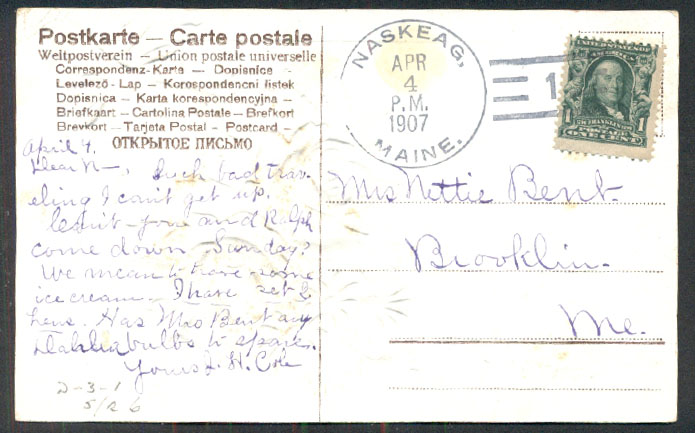 Postkarte — Carte postale
Weltpostverein — Union postale universelle
Correspondenz-Karta — Dopisnice
Levelező-Lap — Korospondencni listek
Dopisnica — Karta korespondencyjna —
Briefkaart — Cartolina Postale — Brefkort
Brevkort — Tarjeta Postal — Postcard —
ОТКРЫТОЕ ПИСЬМО
April 4.
Dear N—, Such bad trav-
eling I can't get up.
Can't you and Ralph
come down Sunday?
We mean to have some
ice cream. I have set 2
hens. Has Mrs Bent any
Dahlia bulbs to spare.
Yours J. H. Cole
D-3-1
5/26
NASKEAG,
APR
4
P.M.
1907
MAINE.
1
UNITED STATES OF
AMERICA
1 FRANKLIN 1
POSTAGE
ONE CENT
Mrs Nettie Bent.
Brooklin.
Me.